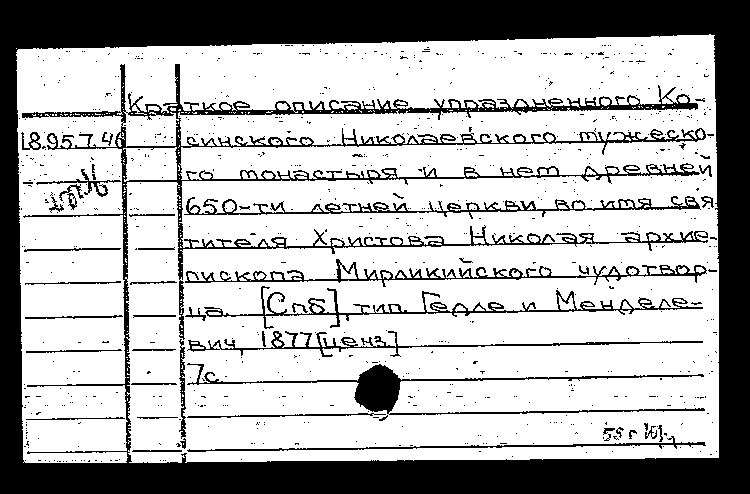 Краткое описание упраздненного Ко-
18.95.7.46 синского Николаевского мужеско-
го монастыря, и в нем древней
650-ти летней церкви, во имя свя
тителя Христова Николая архие-
пископа Мирликийского чудотвор-
ца. [Спб], тип. Гедле и Менделе-
вич, 1877 [ценз]
7с